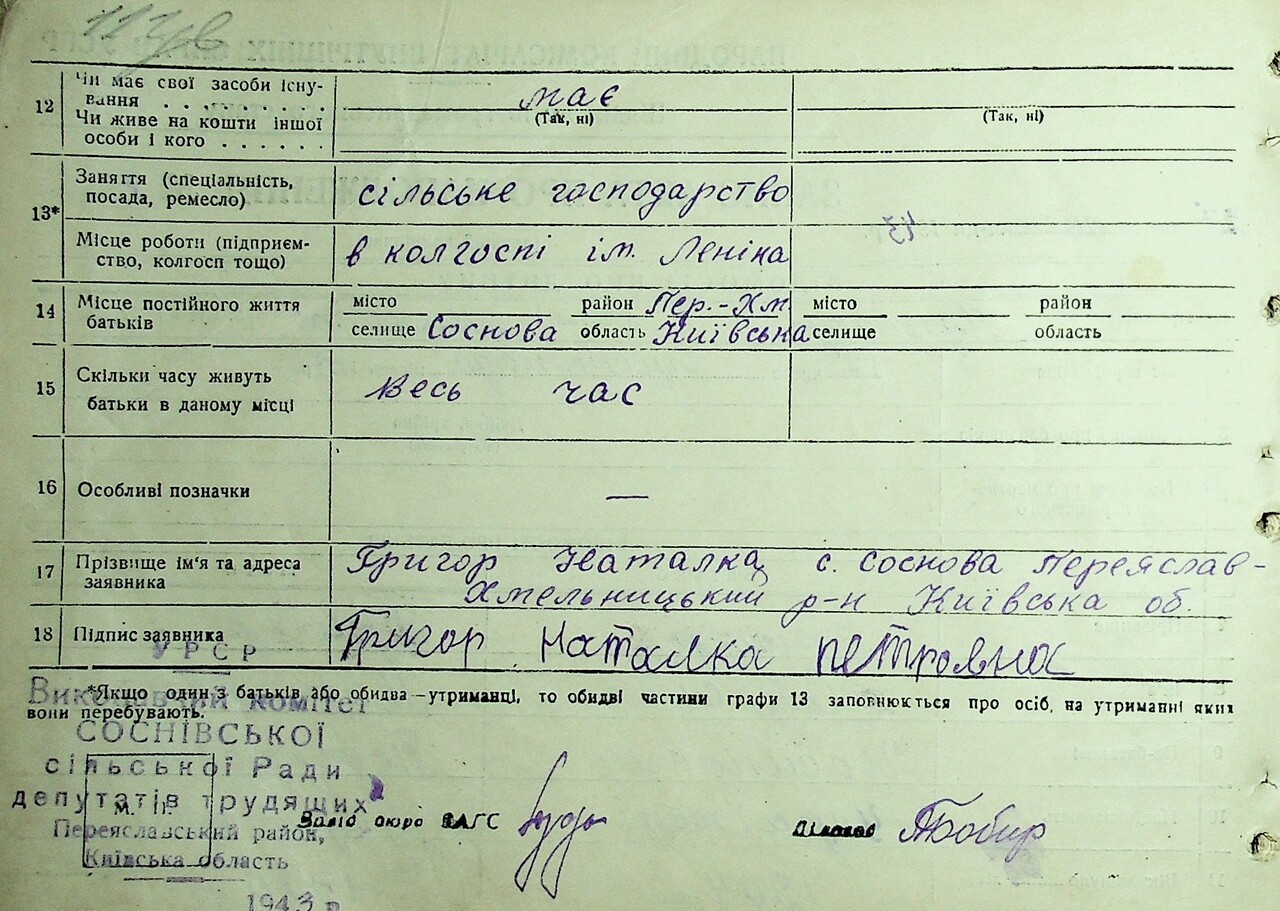 12 Чи має свої засоби існу-
вання . . . . . . . . . має
(Так, ні) (Так, ні)
Чи живе на кошти іншої
особи і кого . . . . . .
13* Заняття (спеціальність,
посада, ремесло) сільське господарство
Місце роботи (підприєм-
ство, колгосп тощо) в колгоспі ім. Леніна
14 Місце постійного життя
батьків
місто район Пер.-Хм. місто район
селище Соснова область Київська селище область
15 Скільки часу живуть
батьки в даному місці весь час
16 Особливі позначки —
17 Прізвище ім'я та адреса
заявника
Григор Наталка с. Соснова Переяслав-
Хмельницький р-н Київська об.
18 Підпис заявника Григор Наталка петровна
*Якщо один з батьків або обидва—утриманці, то обидві частини графи 13 заповнюються про осіб, на утриманні яких
вони перебувають.
УРСР
Виконавчий комітет
СОСНІВСЬКОЇ
сільської Ради
депутатів трудящих
Переяславський район,
Київська область
1943 р
М. П.
бюро ЗАГС